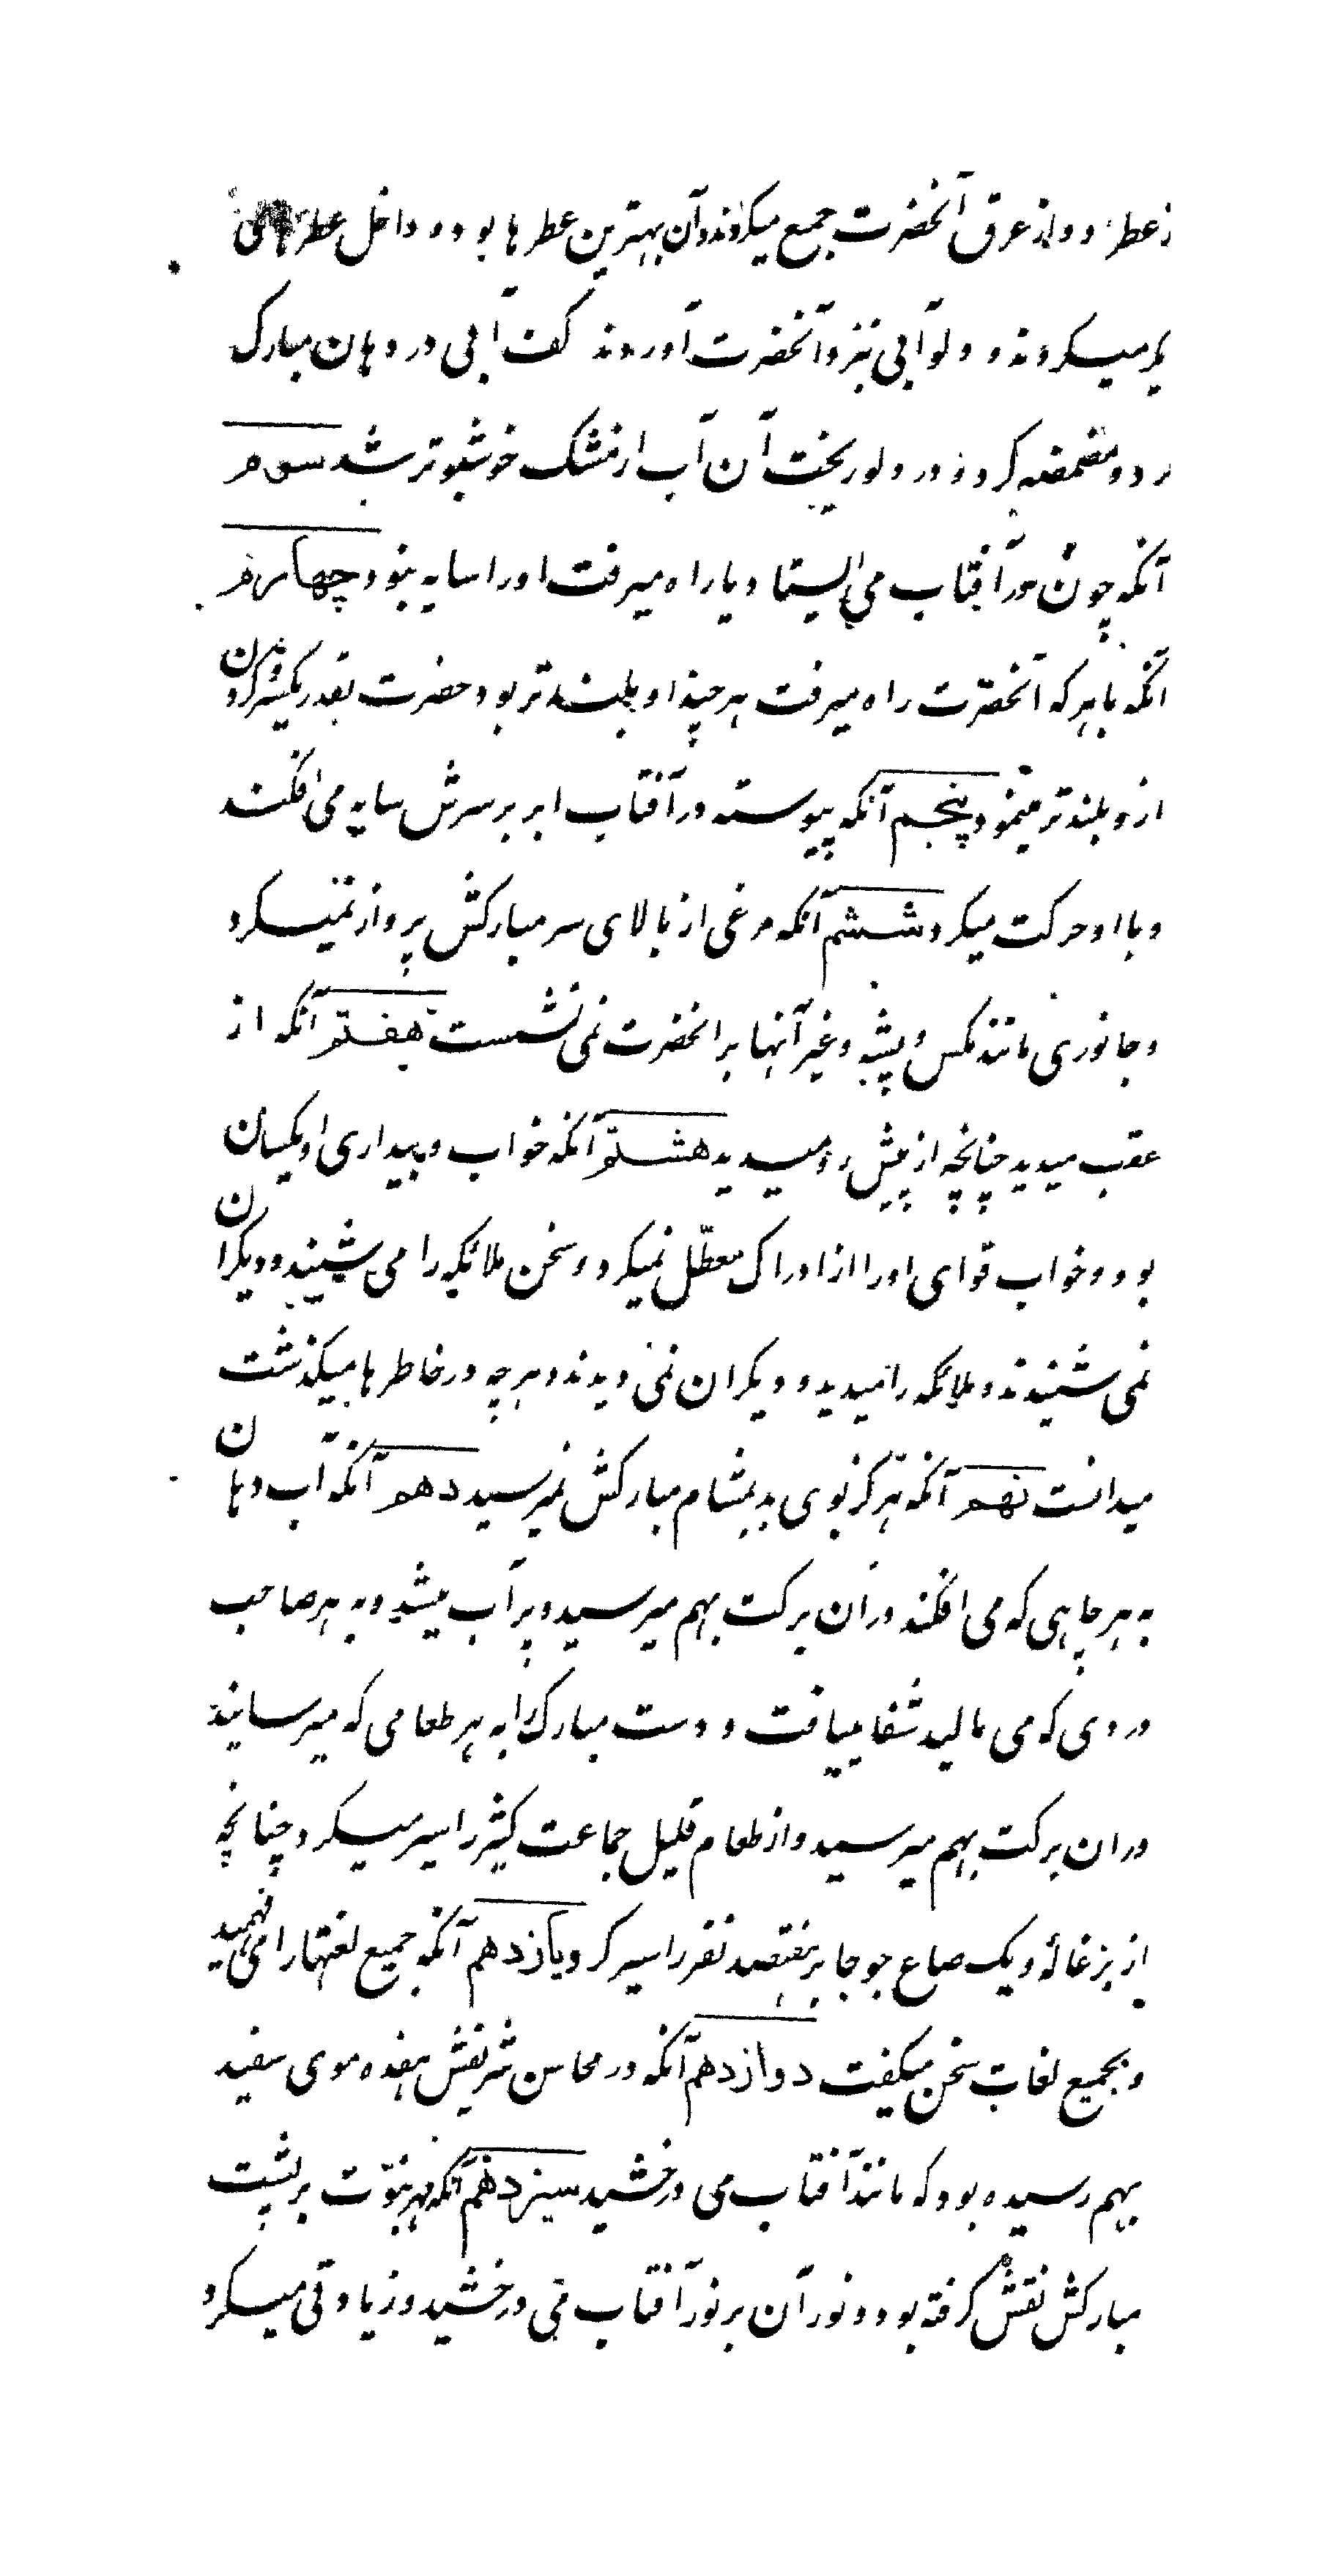 ز عطر و از عرق آنحضرت جمع میکردند و آن بهترین عطرها بود و داخل عطر
میکردند و دلو آبی بنزد آنحضرت آوردند کف آبی در دهان مبارک
کرد و مضمضه کرد و در دلو ریخت آن آب از مشک خوشبوتر شد سوم
آنکه چون در آفتاب می ایستاد یا راه میرفت او را سایه نبود چهارم
آنکه با هر که آنحضرت راه میرفت هر چند او بلندتر بود حضرت بقدر یکسر و گردن
از و بلندتر مینمود پنجم آنکه پیوسته در آفتاب ابر بر سرش سایه می افکند
و با او حرکت میکرد ششم آنکه مرغی از بالای سر مبارکش پرواز نمیکرد
و جانوری مانند مکس و پشه و غیر آنها بر آنحضرت نمی نشست هفتم آنکه از
عقب میدید چنانچه از پیش رو میدید هشتم آنکه خواب و بیداری او یکسان
بود و خواب قوای او را از ادراک معطّل نمیکرد و سخن ملائکه را می شنید و دیکران
نمی شنیدند و ملائکه را میدید و دیکران نمی دیدند و هر چه در خاطرها میکذشت
میدانست نهم آنکه هرکز بوی بد بمشام مبارکش نمیرسید دهم آنکه آب دهان
به هر چاهی که می افکند در آن برکت بهم میرسید و پر آب میشد و به هر صاحب
دردی که می مالید شفا مییافت و دست مبارک را به هر طعامی که میرسانید
در ان برکت بهم میرسید و از طعام قلیل جماعت کثیر را سیر میکرد چنانچه
از بزغاله و یک صاع جو جابر هفتصد نفر را سیر کرد یازدهم آنکه جمیع لغتها را می فهمید
و بجمیع لغات سخن میکفت دوازدهم آنکه در محاسن شریفش هفده موی سفید
بهم رسیده بود که مانند آفتاب می درخشید سیزدهم آنکه مهر نبوّت بر پشت
مبارکش نقش کرفته بود و نور آن بر نور آفتاب می درخشید و زیادتی میکرد